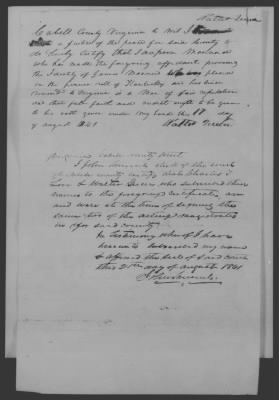 Walter Queen
Cabell County Virginia to wit I
a Justice of the peace for said County &
do hereby Certify that Sampson
who has made the foregoing affidavit proving
the Identity of James was placed
on the pension roll of Kentucky
is a man of fair reputation
and that full faith and credit ought to be given
to his oath given under my hand this 18 day
of august 1841 Walter Queen
Virginia Cabell County Court
I John Samuels clerk of the court
of said county certify that Charles
Love & Walter Queen who subscribed their
names to the foregoing certificates, are
and were at the time of signing the
same two of the acting magistrates
in & for said county
In Testimony whereof I have
hereunto subscribed my name
& affixed the seal of said court
this 21st day of august 1841
J Samuels